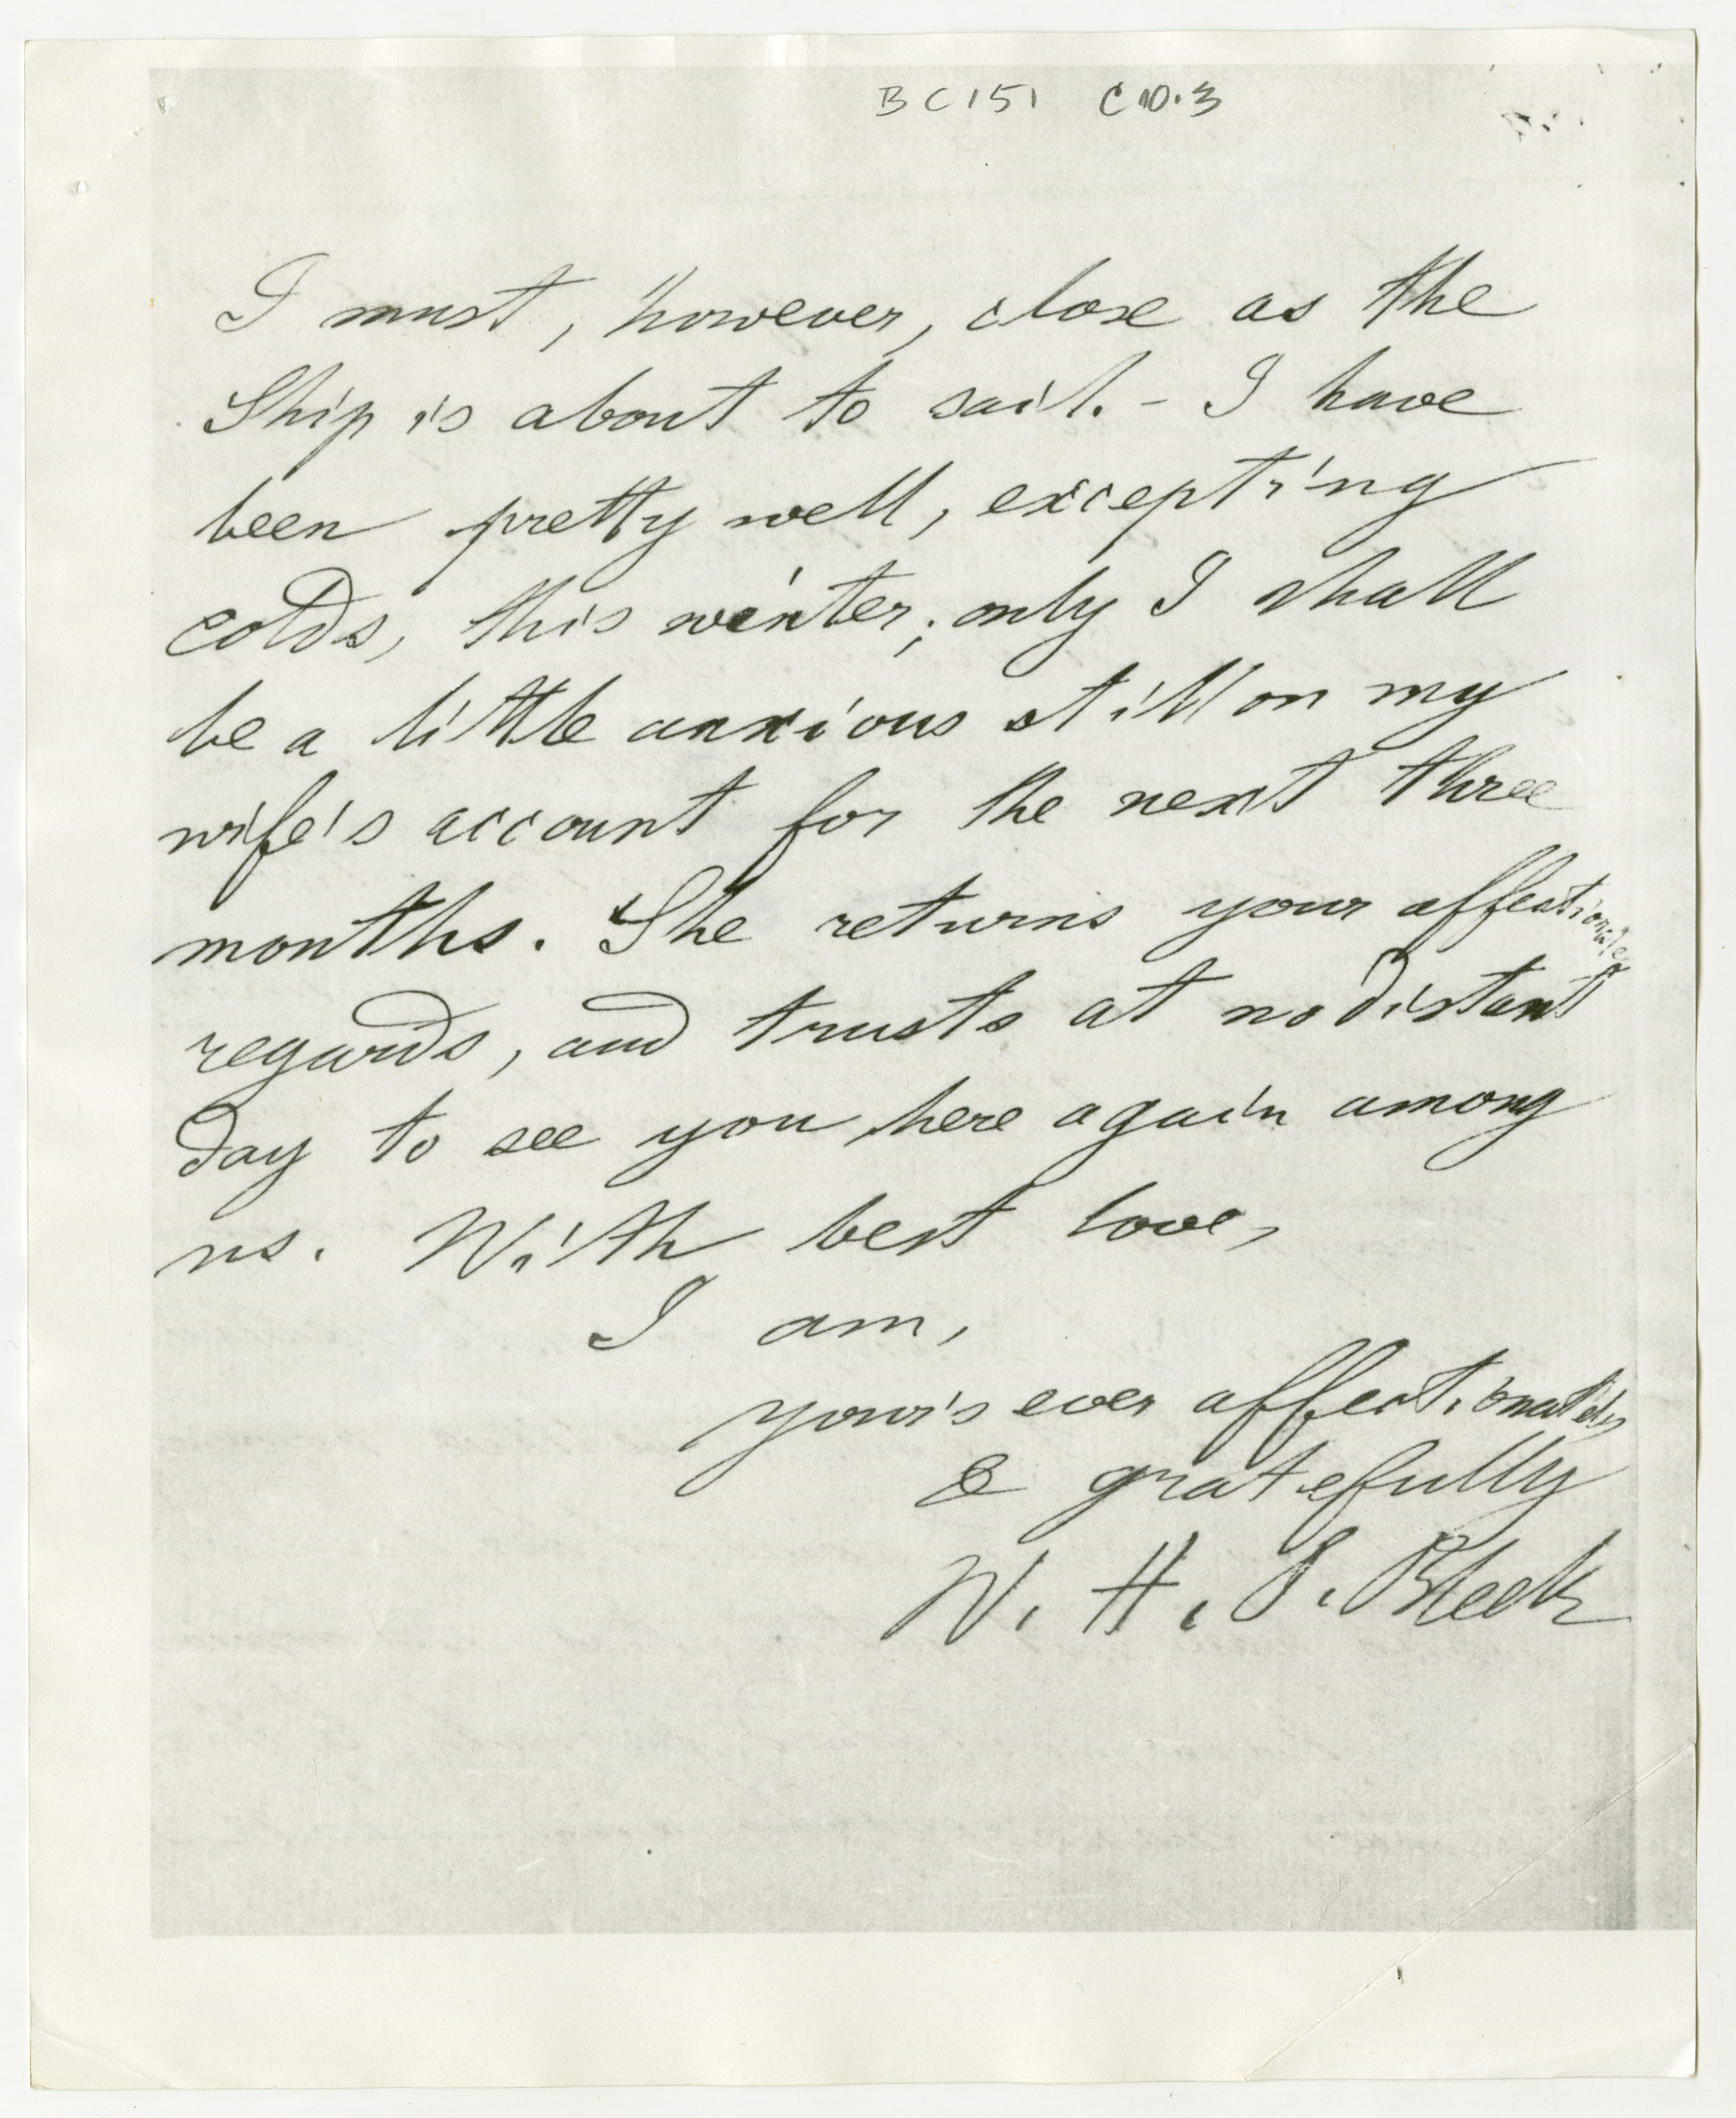 BC151 C10.3
I must, however, close as the
Ship is about to sail. - I have
been pretty well, excepting
colds, this winter; only I shall
be a little anxious still on my
wife's account for the next three
months. She returns your affectionate
regards, and trusts at no distant
day to see you here again among
us. With best love,
I am,
your's ever affectionately
& gratefully
W. H. I. Bleek